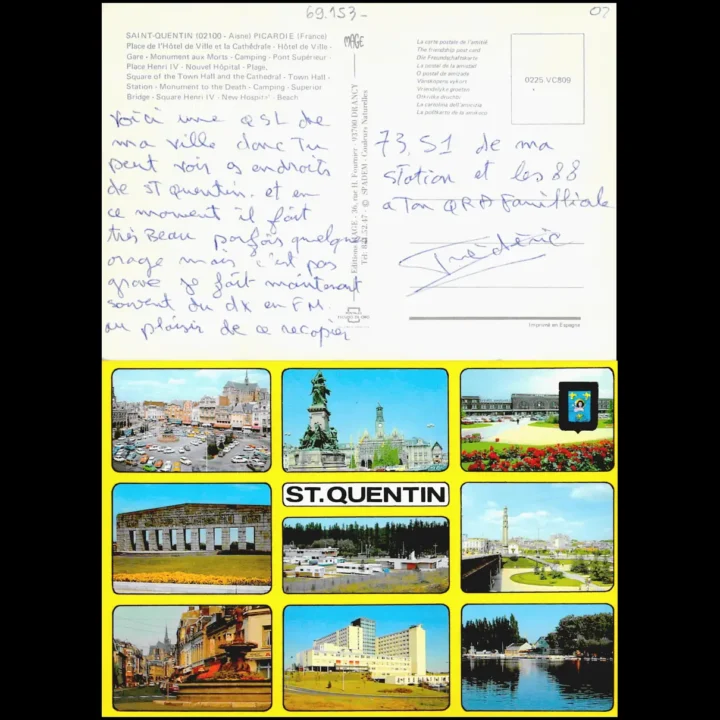 69.153-
0?
SAINT-QUENTIN (02100 - Aisne) PICARDIE (France)
Place de l'Hôtel de Ville et la Cathédrale - Hôtel de Ville -
Gare - Monument aux Morts - Camping - Pont Supérieur -
Place Henri IV - Nouvel Hôpital - Plage.
Square of the Town Hall and the Cathedral - Town Hall -
Station - Monument to the Death - Camping - Superior
Bridge - Square Henri IV - New Hospital - Beach
Voici une QSL de
ma ville donc Tu
peut voir 9 endroits
de st quentin. et en
ce moment il fait
très Beau parfois quelques
orage mais c'est pas
grave je fait maintenant
souvent du dx en FM.
au plaisir de ce recopier
MAGE
Editions MAGE - 36, rue H. Fournier - 93700 DRANCY
Tél. 8 © SPADEM - Couleurs Naturelles
La carte postale de l'amitié
The friendship post card
Die Freundschaftskarte
La postal de la amistad
O postal da amizade
Vänskapens vykort
Vriendelijke groeten
La cartolina dell'amicizia
0225 VC809
73, 51 de ma
station et les 88
a Ton QRA Familliale
Frédéric
Imprimé en Espagne
ST. QUENTIN